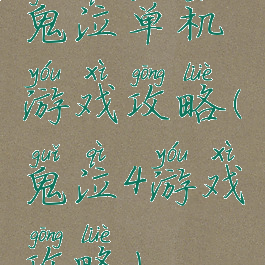 鬼泣单机
yóu xì gōng lüè
游戏攻略(
guǐ qì yóu xì
鬼泣4游戏
gōng lüè
攻略)